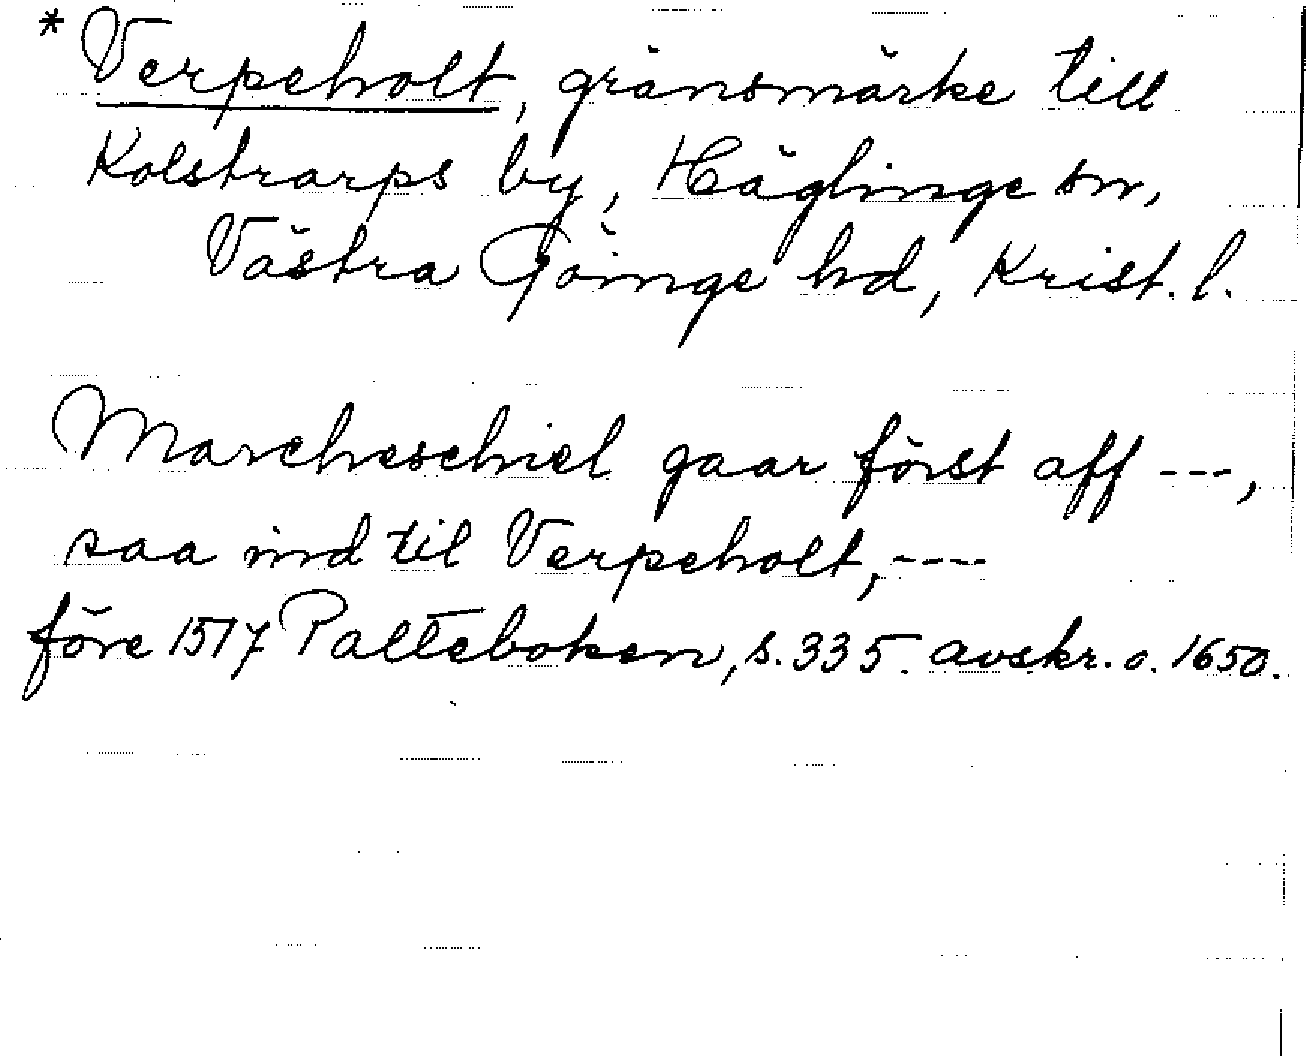 * Verpeholt, gränsmärke till
Kolstrarps by, Häglinge sn,
Västra Göinge hd, Krist. l.
Marcheschiel gaar först aff ---,
saa ind til Verpeholt, ----
före 1517 Palteboken, s. 335. avskr. o. 1650.